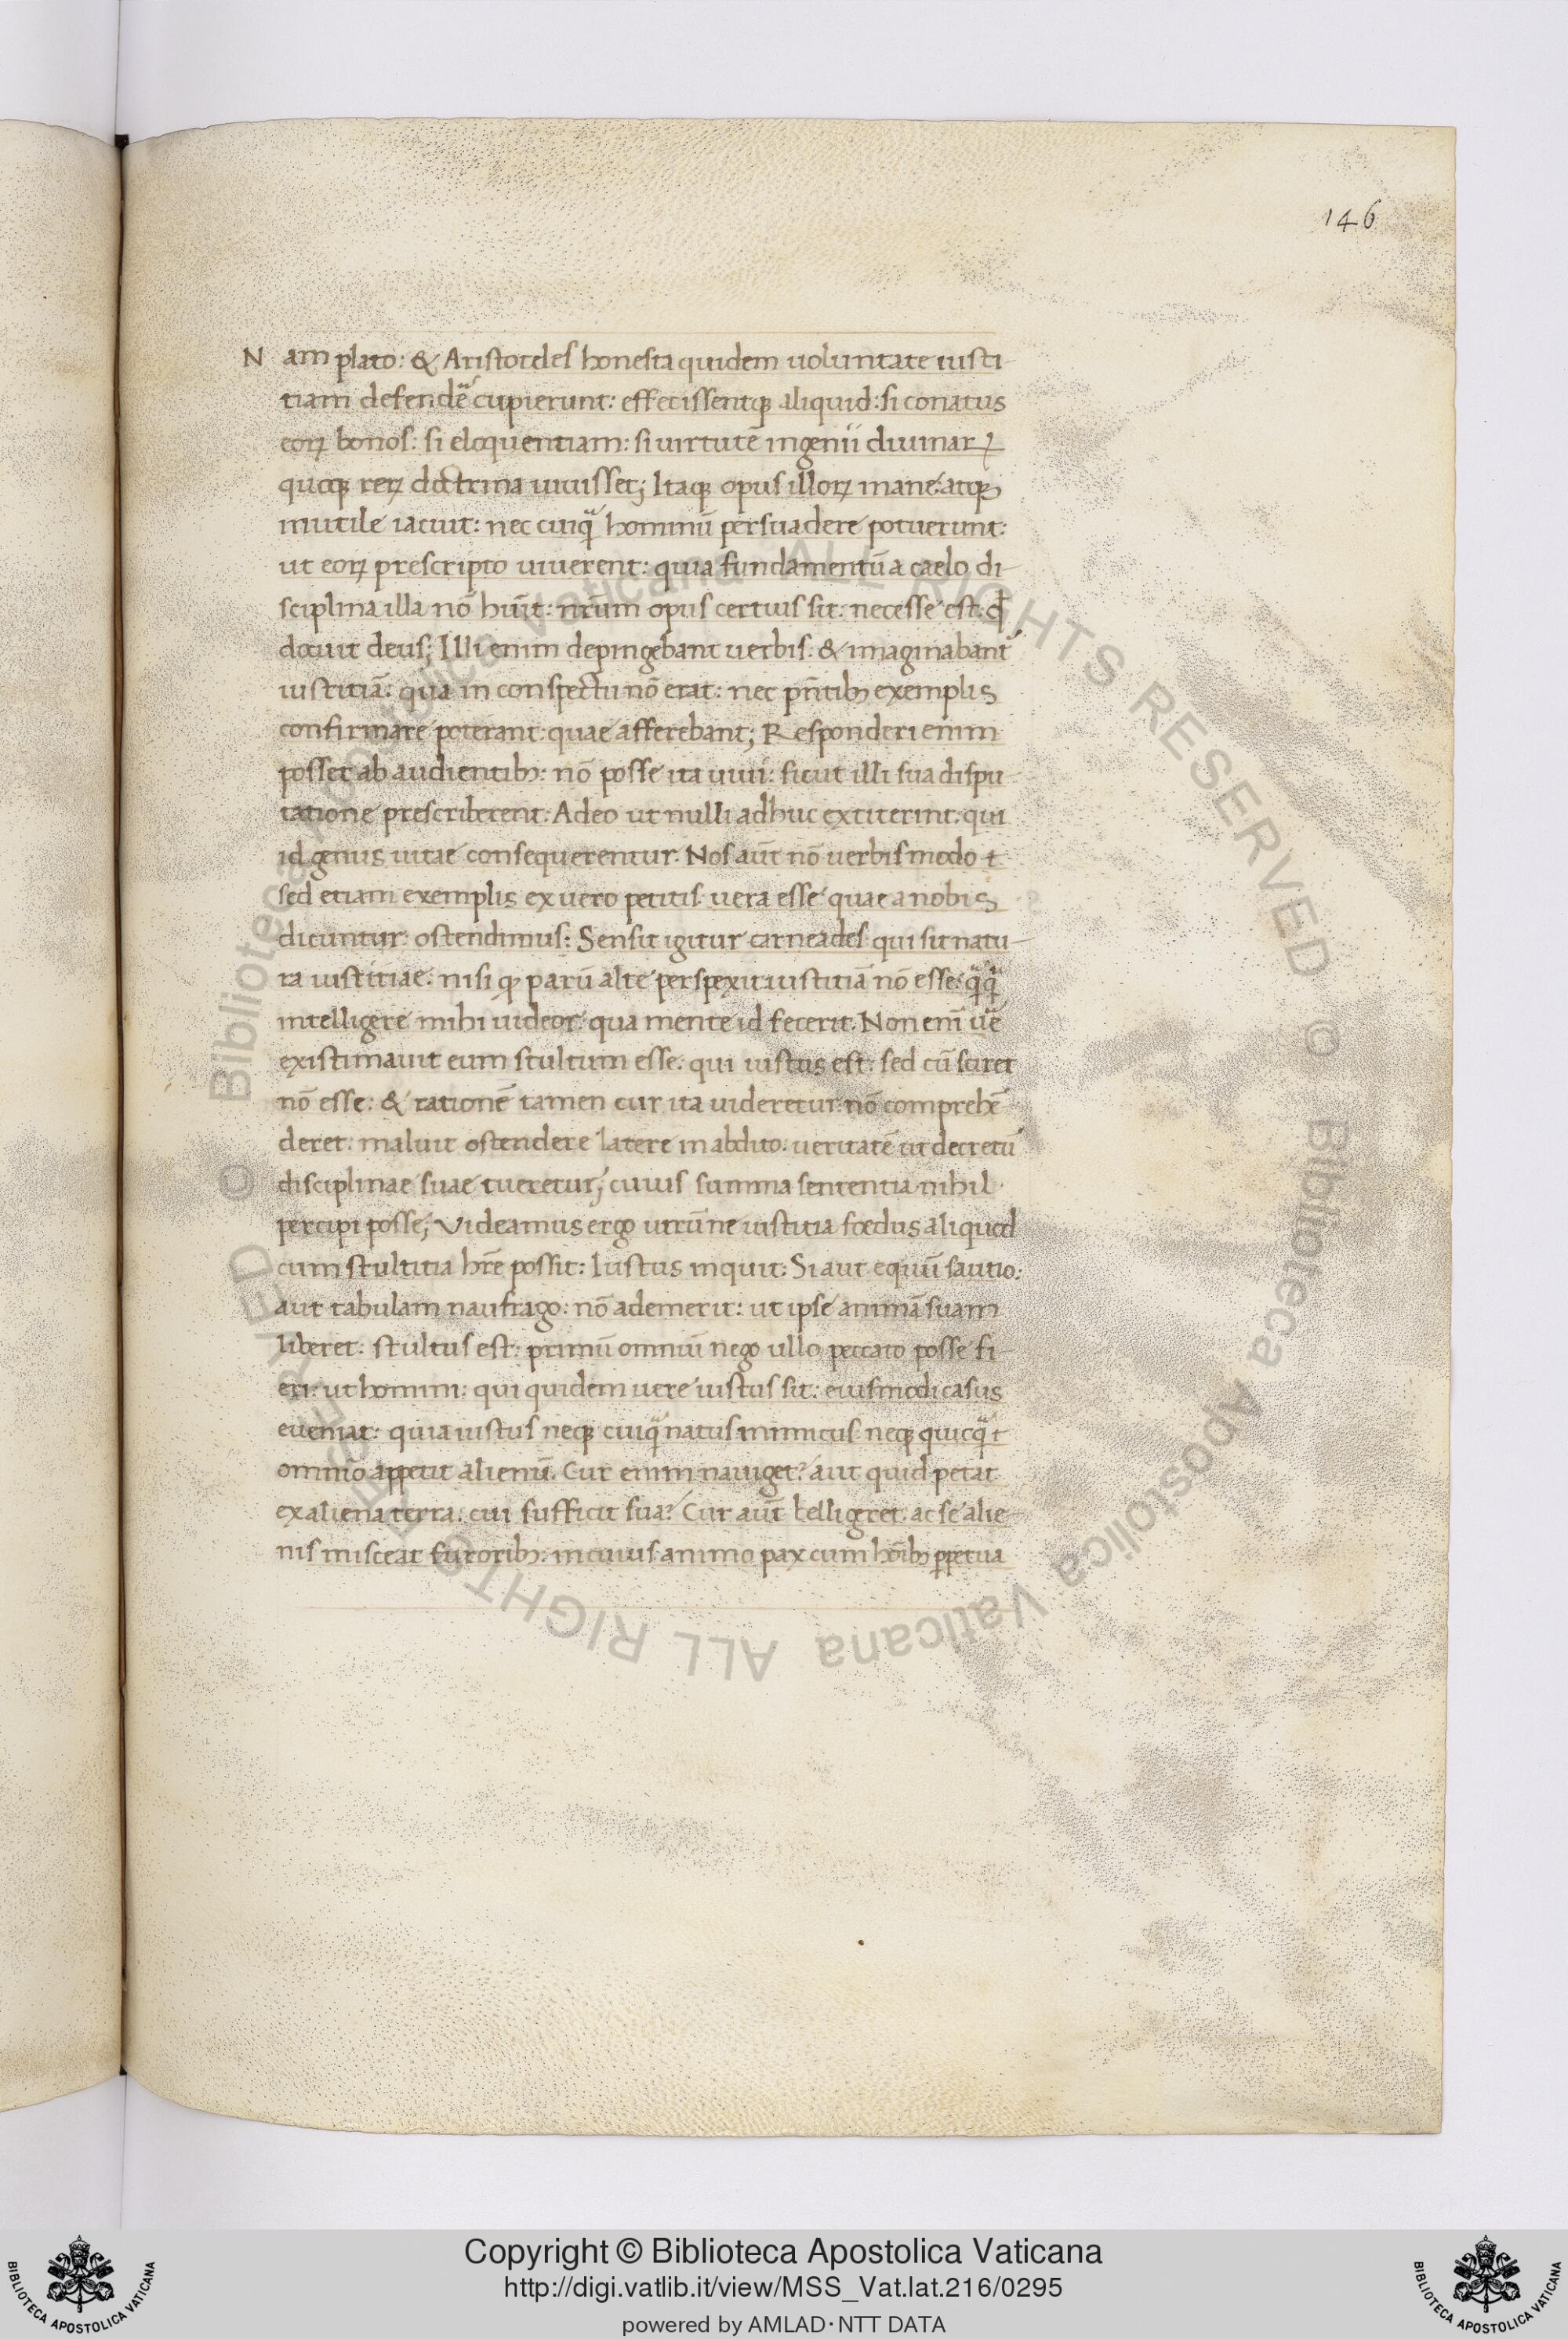 146
Nam plato: & Aristoteles honesta quidem uoluntate iusti
tiam defendẽ cupierunt: effecissentqꝫ aliquid: si conatus
eoꝝ bonos: si eloquentiam: si uirtutẽ ingenii diuinaꝝ
quoqꝫ reꝝ doctrina iuuisset; Itaqꝫ opus illoꝝ mane: atqꝫ
inutile iacuit: nec cuiq̃ hominũ persuadere potuerunt:
ut eoꝝ prescripto uiuerent: quia fundamentũ a caelo di
sciplina illa nõ hũit: nr̃um opus certius sit: necesse est: qđ
docuit deus; Illi enim depingebant uerbis: & imaginabant᷑
iustitiã: qua in conspectu nõ erat: nec pñtibꝫ exemplis
confirmare poterant: quae afferebant; Responderi enim
posset ab audientibꝫ: nõ posse ita uiui: sicut illi sua dispu
tatione prescriberent: Adeo ut nulli adhuc extiterint: qui
id genus uitae consequerentur. Nos aũt nõ uerbis modo
sed etiam exemplis ex uero petitis uera esse quae a nobis
dicuntur: ostendimus: Sensit igitur carneades qui sit natu
ra iustitiae: nisi qꝫ parũ alte perspexit iustitiã nõ esse: q̃q̃
intelligere mihi uideor: qua mente id fecerit. Non eni᷑ uẽ
existimauit eum stultum esse: qui iustus est: sed cũ sciret
nõ esse: & rationẽ tamen cur ita uideretur: nõ comprehẽ
deret: maluit ostendere latere in abdito: ueritatẽ ut decretũ
disciplinae suae tueretur; cuius summa sententia nihil
percipi posse; Videamus ergo utrũne iustitia foedus aliquod
cum stultitia hr̃e possit: Iustus inquit: Si aut equũ sautio:
aut tabulam naufrago: nõ ademerit: ut ipse animã suam
liberet: stultus est: primũ omniũ nego ullo peccato posse fi
eri: ut homini: qui quidem uere iustus sit: eiusmodi casus
eueniat: quia iustus neqꝫ cuiq̃ natus inimicus neqꝫ quicq̃
omniño appetit alienũ. Cur enim nauiget? aut quid petat
ex aliena terra: cui sufficit sua? Cur aũt belligeret: ac se alie
nis misceat furoribꝫ: in cuius animo pax cum hoĩbꝫ ꝑpetua
© Biblioteca Apostolica Vaticana ALL RIGHTS RESERVED © Biblioteca Apostolica Vaticana ALL RIGHTS RESERVED
Copyright © Biblioteca Apostolica Vaticana
http://digi.vatlib.it/view/MSS_Vat.lat.216/0295
powered by AMLAD·NTT DATA
BIBLIOTECA APOSTOLICA VATICANA
BIBLIOTECA APOSTOLICA VATICANA